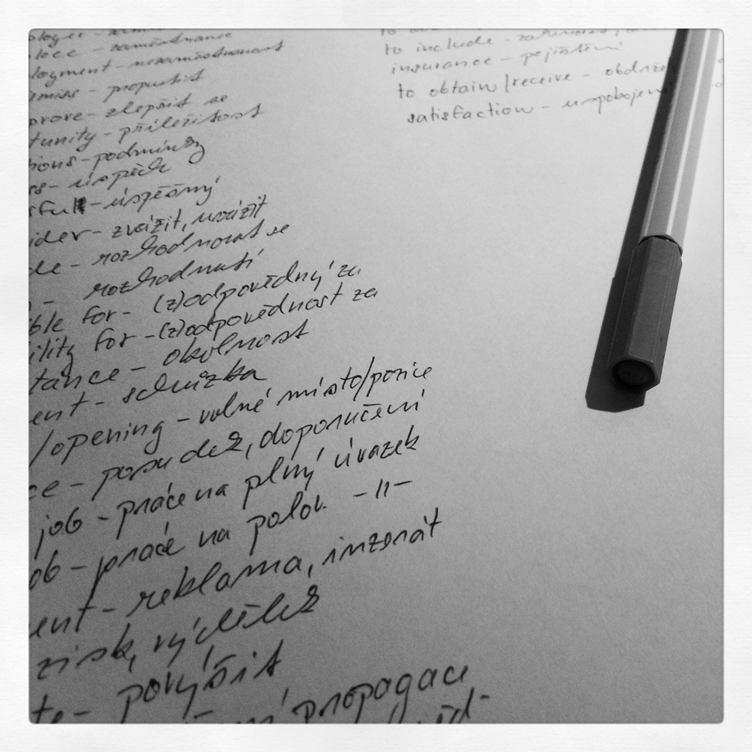 loyer - zaměstnavatel
loyee - zaměstnanec
loyment - nezaměstnanost
dismiss - propustit
prove - zlepšit se
tunity - příležitost
tions - podmínky
ss - úspěch
sful - úspěšný
ider - zvážit, uvážit
de - rozhodnout se
rozhodnutí
ble for - (z)odpovědný za
ility for - (z)odpovědnost za
tance - okolnost
ent - schůzka
/opening - volné místo/pozice
ce - posudek, doporučení
job - práce na plný úvazek
ob - práce na polov. -||-
ent - reklama, inzerát
zisk, výdělek
te - povýšit
ní propagace
to include - zahrnovat,
insurance - pojištění
to obtain/receive - obdržet
satisfaction - uspokojení